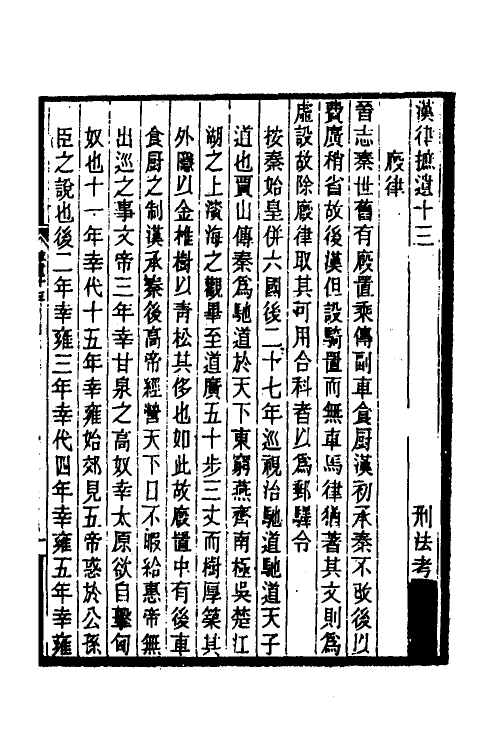 漢律摭遺十三　刑法考
廄律
晉志秦世舊有廄置乘傳副車食厨漢初承秦不改後以
費廣稍省故後漢但設騎置而無車馬律猶著其文則爲
虛設故除廄律取其可用合科者以爲郵驛令
按秦始皇併六國後二十七年巡視治馳道馳道天子
道也賈山傳秦爲馳道於天下東窮燕齊南極吳楚江
湖之上濱海之觀畢至道廣五十步三丈而樹厚築其
外隱以金椎樹以靑松其侈也如此故廄置中有後車
食厨之制漢承秦後高帝經營天下日不暇給惠帝無
出巡之事文帝三年幸甘泉之高奴幸太原欲自擊匈
奴也十一年幸代十五年幸雍始郊見五帝惑於公孫
臣之說也後二年幸雍三年幸代四年幸雍五年幸雍